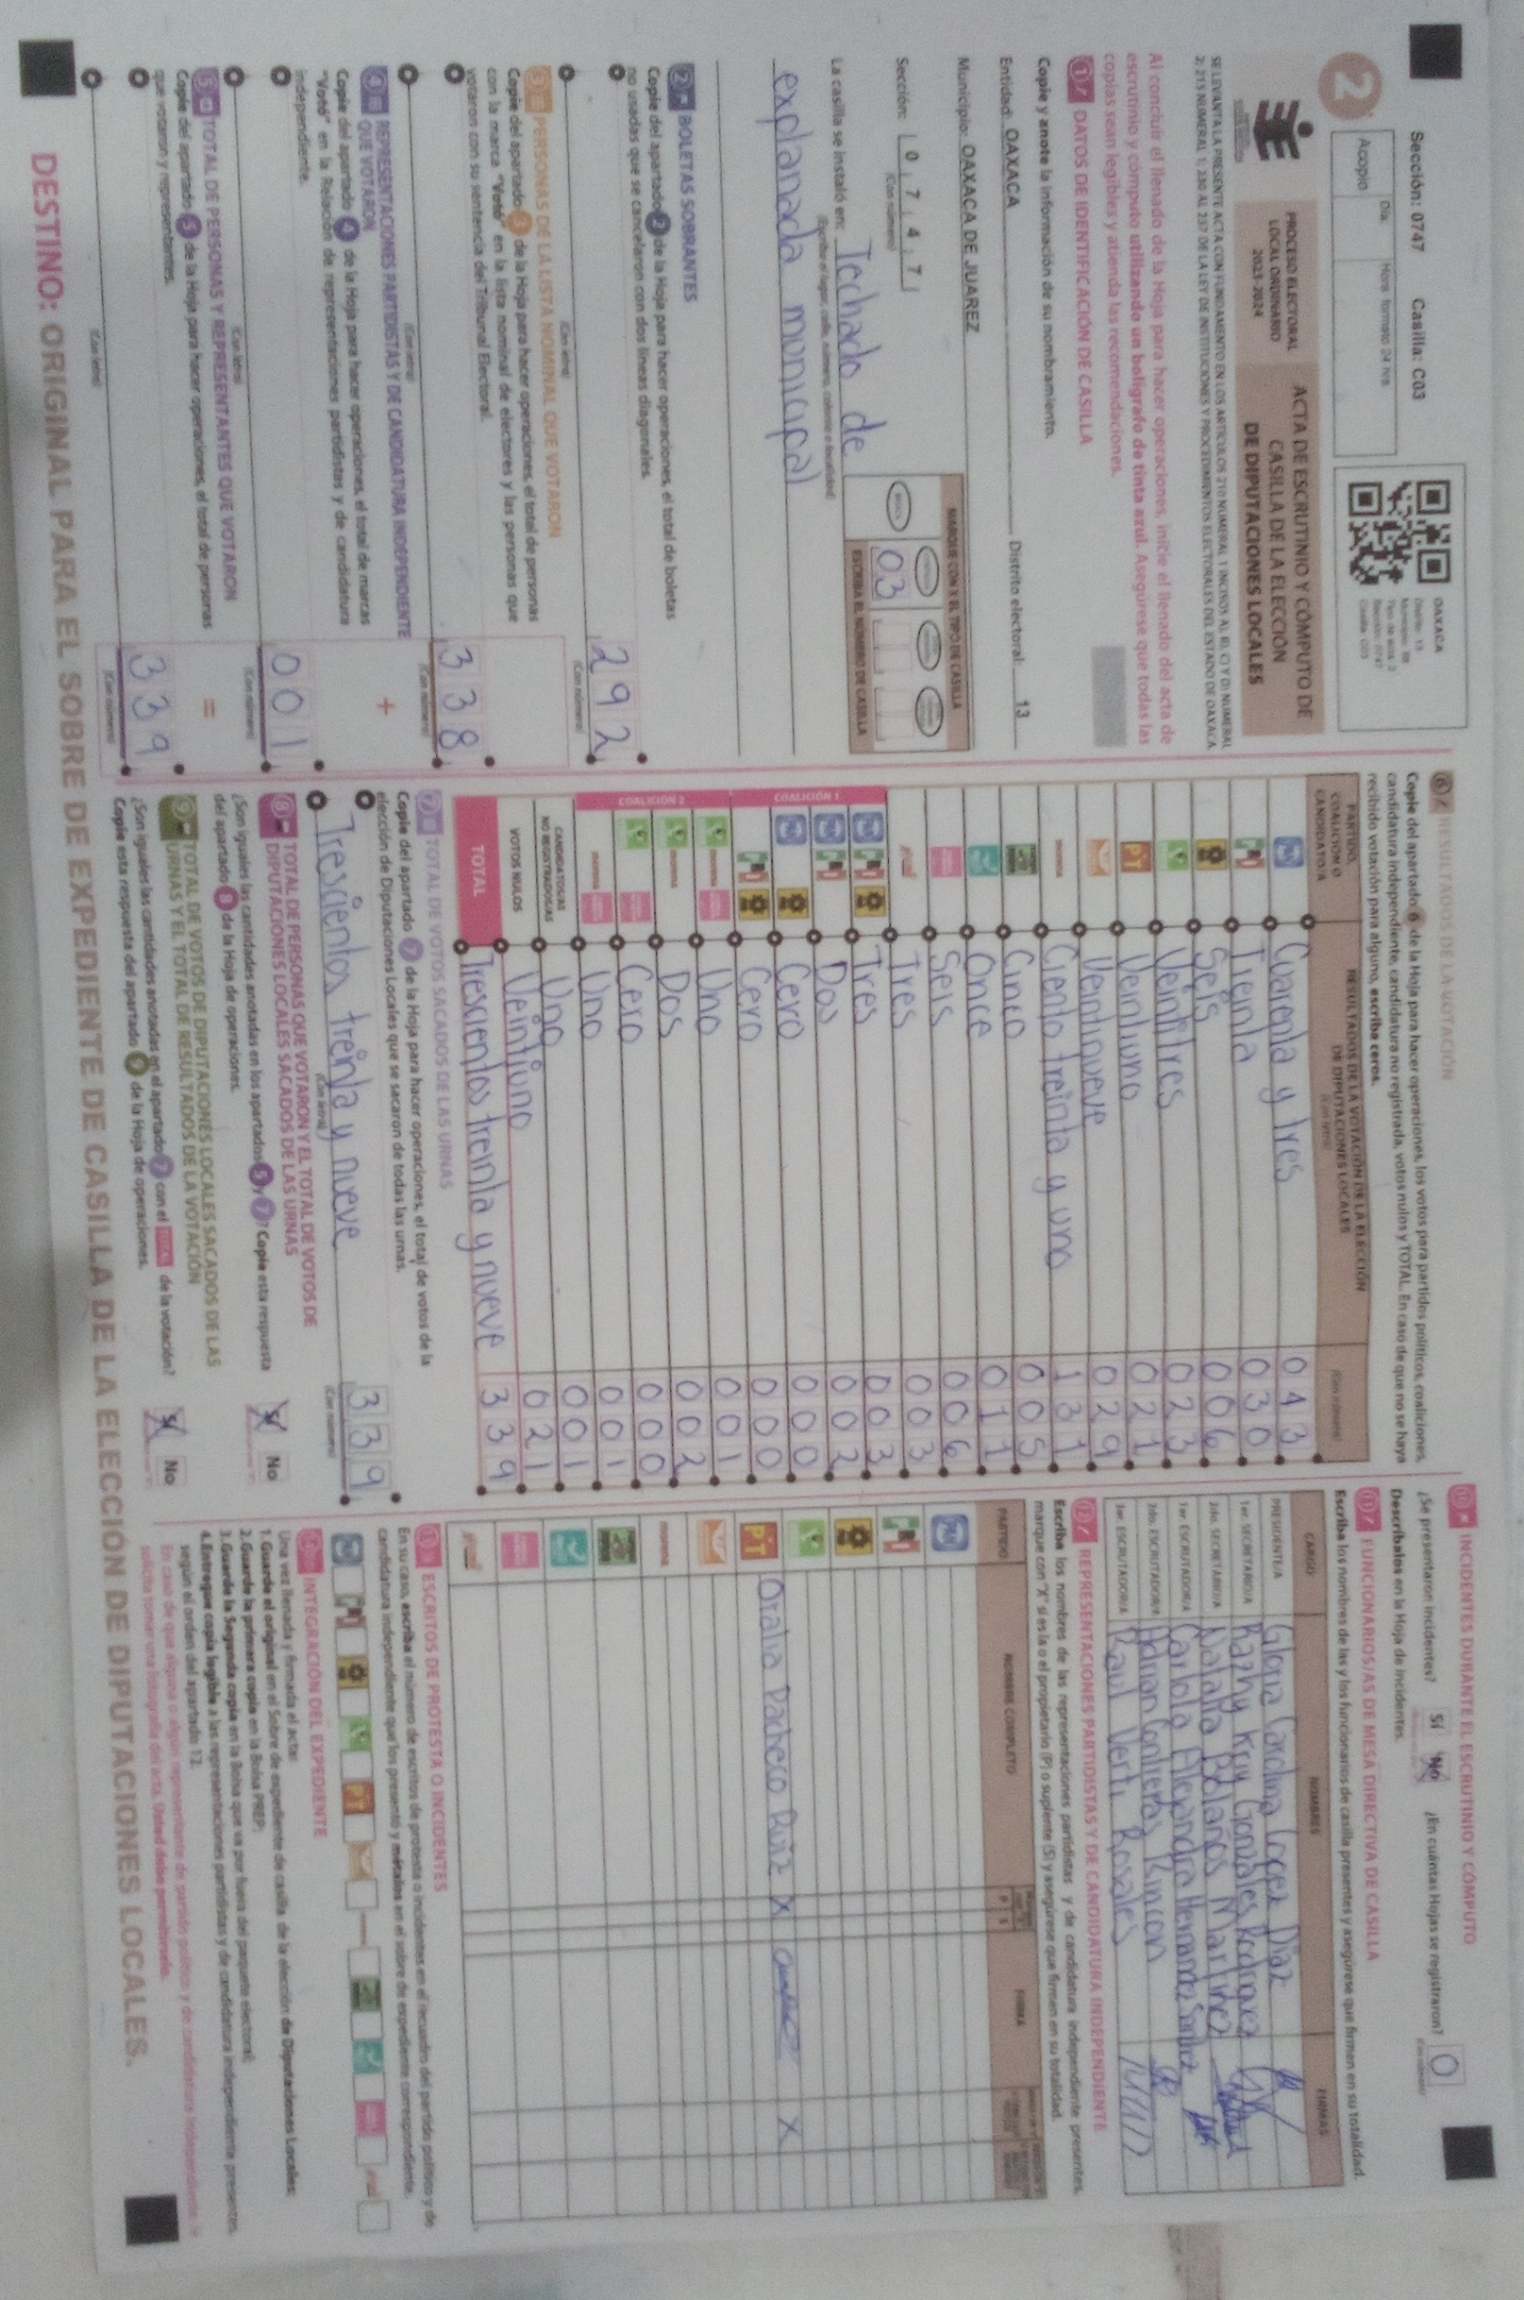 Sección: 0747 Casilla: C03
2
Día Hora formato 24 hrs.
Acopio
OAXACA
Distrito: 13
PROCESO ELECTORAL
LOCAL ORDINARIO
2023-2024
ACTA DE ESCRUTINIO Y CÓMPUTO DE
CASILLA DE LA ELECCIÓN
DE DIPUTACIONES LOCALES
SE LEVANTA LA PRESENTE ACTA CON FUNDAMENTO EN LOS ARTÍCULOS 210 NUMERAL 1 INCISOS A), B), C) Y D) NUMERAL
2; 215 NUMERAL 1; 230 AL 237 DE LA LEY DE INSTITUCIONES Y PROCEDIMIENTOS ELECTORALES DEL ESTADO DE OAXACA.
Al concluir el llenado de la Hoja para hacer operaciones, inicie el llenado del acta de
escrutinio y cómputo utilizando un bolígrafo de tinta azul. Asegúrese que todas las
copias sean legibles y atienda las recomendaciones.
1 DATOS DE IDENTIFICACIÓN DE CASILLA
Copie y anote la información de su nombramiento.
Entidad: OAXACA Distrito electoral: 13
Municipio: OAXACA DE JUAREZ
Sección: 0 7 4 7
(Con número)
MARQUE CON X EL TIPO DE CASILLA
03
ESCRIBA EL NÚMERO DE CASILLA
La casilla se instaló en: Techado de
(Escriba el lugar, calle, número, colonia o localidad)
explanada municipal
2 BOLETAS SOBRANTES
Copie del apartado 2 de la Hoja para hacer operaciones, el total de boletas
no usadas que se cancelaron con dos líneas diagonales.
292
(Con letra) (Con número)
3 PERSONAS DE LA LISTA NOMINAL QUE VOTARON
Copie del apartado 3 de la Hoja para hacer operaciones, el total de personas
con la marca "Votó" en la lista nominal de electores y las personas que
votaron con su sentencia del Tribunal Electoral.
338
(Con letra) (Con número)
+
4 REPRESENTACIONES PARTIDISTAS Y DE CANDIDATURA INDEPENDIENTE
QUE VOTARON
Copie del apartado 4 de la Hoja para hacer operaciones, el total de marcas
"Votó" en la Relación de representaciones partidistas y de candidatura
independiente.
001
(Con letra) (Con número)
=
5 TOTAL DE PERSONAS Y REPRESENTANTES QUE VOTARON
Copie del apartado 5 de la Hoja para hacer operaciones, el total de personas
que votaron y representantes.
339
(Con letra) (Con número)
6 RESULTADOS DE LA VOTACIÓN
Copie del apartado 6 de la Hoja para hacer operaciones, los votos para partidos políticos, coaliciones,
candidatura independiente, candidatura no registrada, votos nulos y TOTAL. En caso de que no se haya
recibido votación para alguno, escriba ceros.
PARTIDO, COALICIÓN O CANDIDATO/A
RESULTADOS DE LA VOTACIÓN DE LA ELECCIÓN
DE DIPUTACIONES LOCALES
(Con letra) (Con número)
PAN Cuarenta y tres 043
PRI Treinta 030
PRD Seis 006
Veintitres 023
PT Veintiuno 021
Veintinueve 029
morena Ciento treinta y uno 131
Cinco 005
Once 011
Seis 006
Tres 003
COALICIÓN 1
Tres 003
Dos 002
Cero 000
Cero 000
COALICIÓN 2
Uno 001
Dos 002
Cero 000
Uno 001
CANDIDATOS/AS NO REGISTRADOS/AS Uno 001
VOTOS NULOS Veintiuno 021
TOTAL Trescientos treinta y nueve 339
7 TOTAL DE VOTOS SACADOS DE LAS URNAS
Copie del apartado 7 de la Hoja para hacer operaciones, el total de votos de la
elección de Diputaciones Locales que se sacaron de todas las urnas.
Trescientos treinta y nueve 339
(Con letra) (Con número)
8 TOTAL DE PERSONAS QUE VOTARON Y EL TOTAL DE VOTOS DE
DIPUTACIONES LOCALES SACADOS DE LAS URNAS
¿Son iguales las cantidades anotadas en los apartados 5 y 7? Copie esta respuesta
del apartado 8 de la Hoja de operaciones.
Sí No
9 TOTAL DE VOTOS DE DIPUTACIONES LOCALES SACADOS DE LAS
URNAS Y EL TOTAL DE RESULTADOS DE LA VOTACIÓN
¿Son iguales las cantidades anotadas en el apartado 7 con el TOTAL de la votación?
Copie esta respuesta del apartado 9 de la Hoja de operaciones.
Sí No
10 INCIDENTES DURANTE EL ESCRUTINIO Y CÓMPUTO
¿Se presentaron incidentes? Sí No ¿En cuántas Hojas se registraron? 0
Descríbalos en la Hoja de incidentes.
11 FUNCIONARIOS/AS DE MESA DIRECTIVA DE CASILLA
Escriba los nombres de las y los funcionarios de casilla presentes y asegúrese que firman en su totalidad.
CARGO NOMBRES FIRMAS
PRESIDENTE/A Gloria Carolina Lopez Diaz
1er. SECRETARIO/A Kazhy Kruy Gonzales Rodriguez
2do. SECRETARIO/A Natalia Bolaños Martinez
1er. ESCRUTADOR/A Carlota Alejandra Hernandez Santiz
2do. ESCRUTADOR/A Adrian Contreras Rincon
3er. ESCRUTADOR/A Raul Verti Rosales
12 REPRESENTACIONES PARTIDISTAS Y DE CANDIDATURA INDEPENDIENTE
Escriba los nombres de las representaciones partidistas y de candidatura independiente presentes,
marque con "X" si es la o el propietario (P) o suplente (S) y asegúrese que firmen en su totalidad.
PARTIDO NOMBRE COMPLETO FIRMA
PT Oralia Pacheco Ruiz X X
13 ESCRITOS DE PROTESTA O INCIDENTES
En su caso, escriba el número de escritos de protesta o incidentes en el recuadro del partido político y de
candidatura independiente que los presentó y métalos en el sobre de expediente correspondiente.
14 INTEGRACIÓN DEL EXPEDIENTE
Una vez llenada y firmada el acta:
1. Guarde el original en el Sobre de expediente de casilla de la elección de Diputaciones Locales;
2. Guarde la primera copia en la Bolsa PREP;
3. Guarde la Segunda copia en la Bolsa que va por fuera del paquete electoral;
4. Entregue copia legible a las representaciones partidistas y de candidatura independiente presentes,
según el orden del apartado 12.
En caso de que alguna o algún representante de partido político y de candidatura independiente le
solicite tomar una fotografía del acta, Usted debe permitírselo.
DESTINO: ORIGINAL PARA EL SOBRE DE EXPEDIENTE DE CASILLA DE LA ELECCIÓN DE DIPUTACIONES LOCALES.